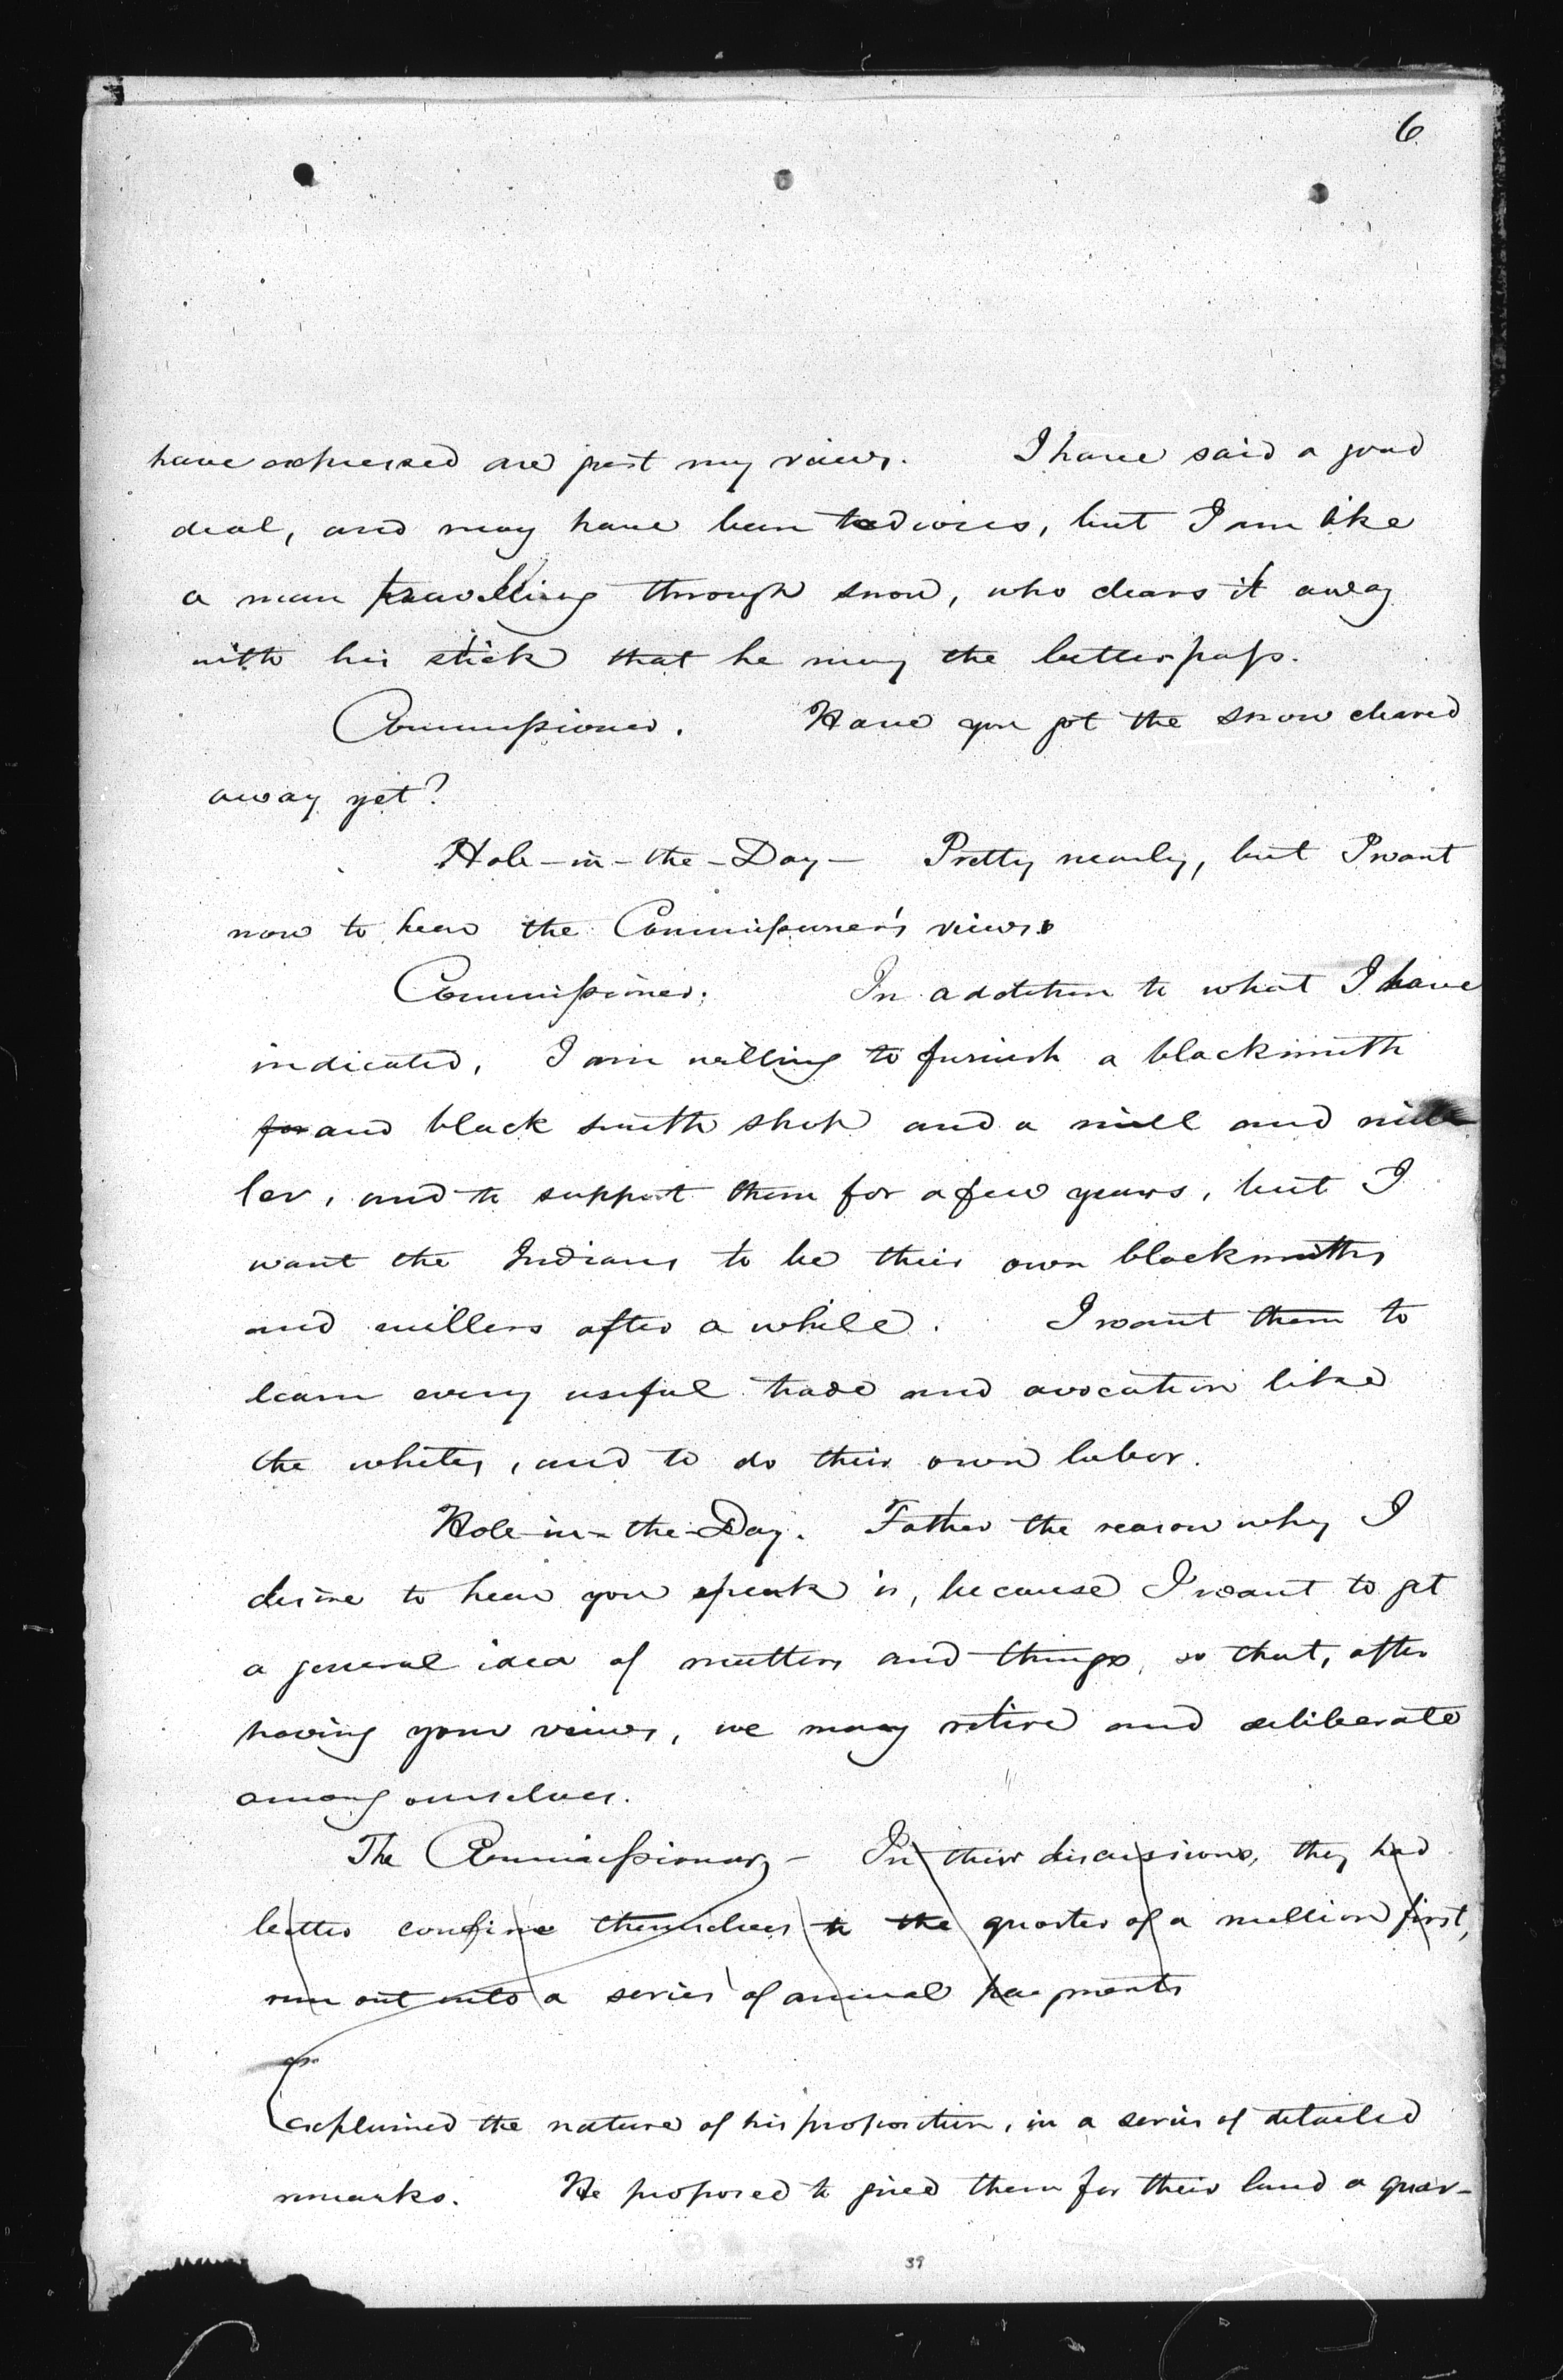 6
have expressed are just my views. I have said a good
deal, and may have been tedious, but I am like
a man travelling through snow, who clears it away
with his stick that he may the better pass.
Commissioner. Have you got the snow cleared
away yet?
Hole-in-the-Day— Pretty nearly, but I want
now to hear the Commissioner's views.
Commissioner. In addition to what I have
indicated, I am willing to furnish a blacksmith
for and black smith shop and a mill and mil
ler, and to support them for a few years, but I
want the Indians to be their own blacksmiths
and millers after a while. I want them to
learn every useful trade and avocation like
the whites, and to do their own labor.
Hole-in-the-Day. Father the reason why I
desire to hear you speak is, because I want to get
a general idea of matters and things, so that, after
having your views, we may retire and deliberate
among ourselves.
The Commissioner, — In their discussions, they had
better confine themselves to the quarter of a million first,
run out into a series of annual payments
explained the nature of his proposition, in a series of detailed
remarks. He proposed to give them for their land a quar-
39